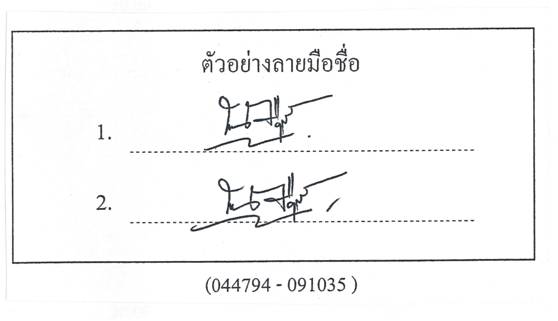 ตัวอย่างลายมือชื่อ
1.
2.
(044794 - 091035 )